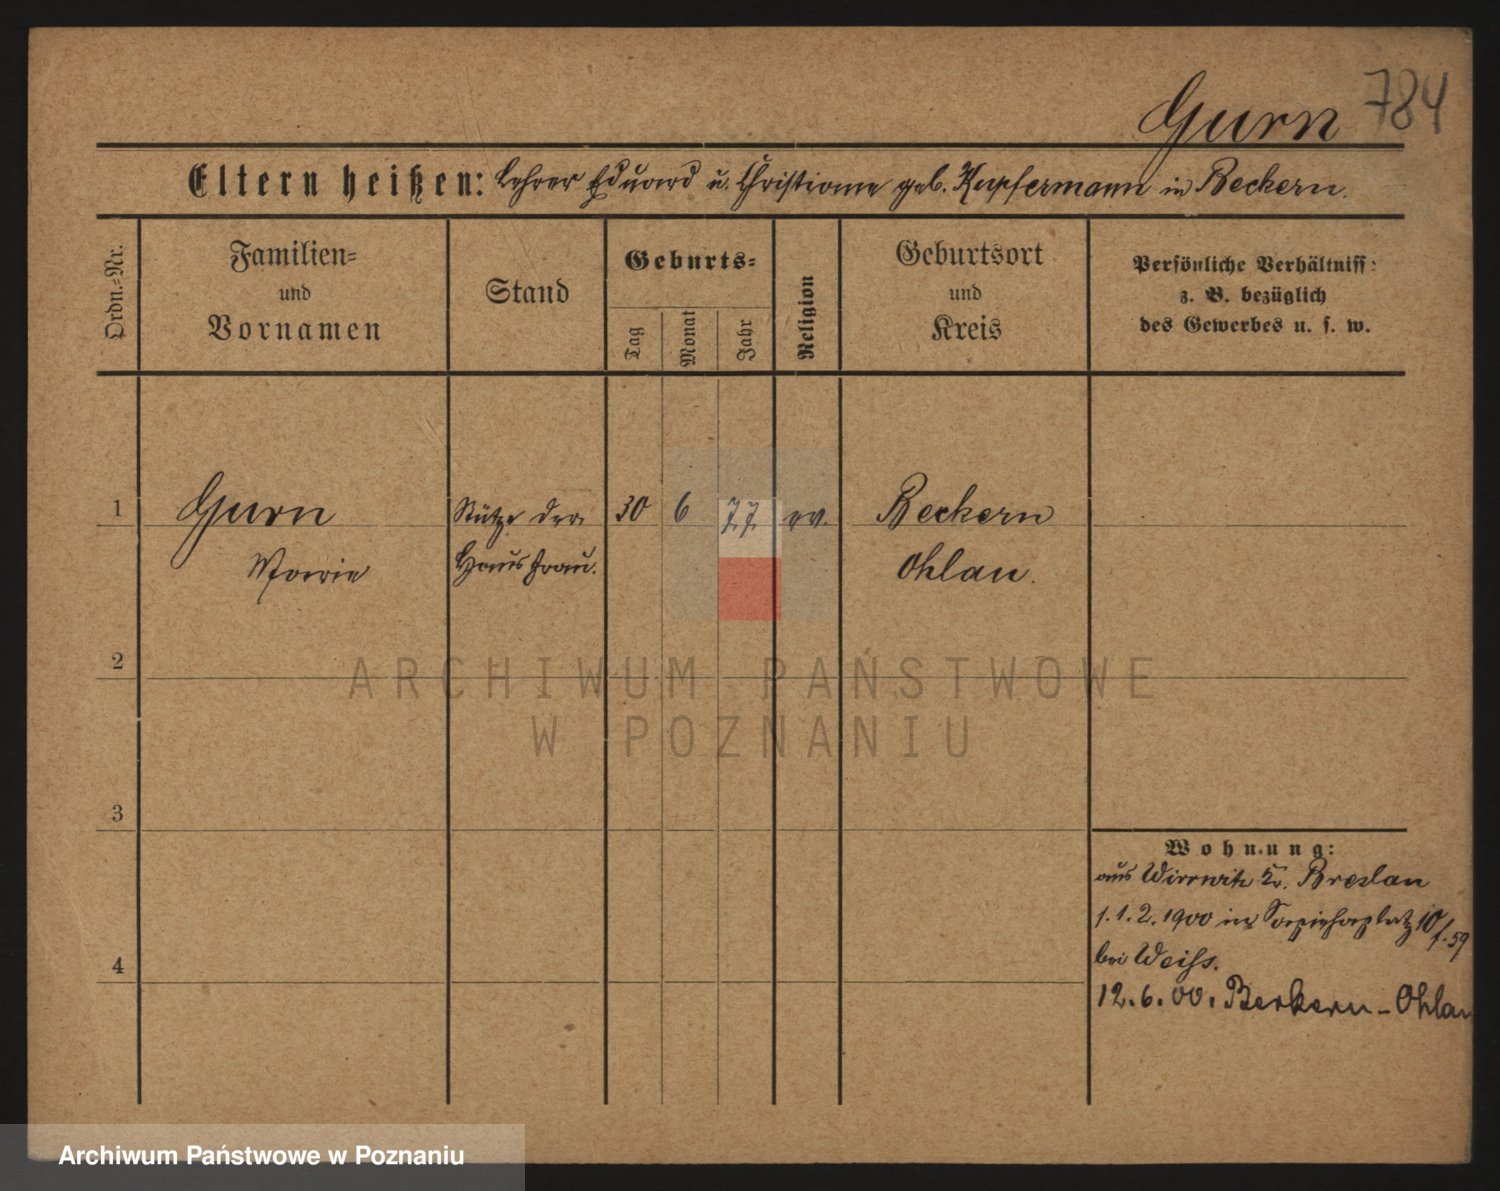 Gurn 784
Eltern heißen: Lehrer Eduard u. Christiane geb. Kupfermann in Beckern.
Ordn.-Nr.
Familien-
und
Vornamen
Stand
Geburts-
Tag
Monat
Jahr
Religion
Geburtsort
und
Kreis
Persönliche Verhältniss:
z. B. bezüglich
des Gewerbes u. s. w.
1 Gurn Stütze der 30 6 77 ev. Beckern
Marie Hausfrau. Ohlau.
2
ARCHIWUM PAŃSTWOWE
W POZNANIU
3
Wohnung:
aus Wirrwitz Kr. Breslau
1.2.1900 in Sapiehaplatz 10/
bei Weiss.
4
12.6.00. Beckern-Ohlau
Archiwum Państwowe w Poznaniu